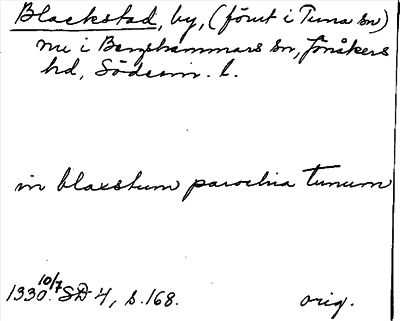 Blackstad, by, (förut i Tuna sn)
nu i Bergshammars sn, Jönåkers
hd, Söderm. l.
in blaxstum parochia tunum
1330 10/7 SD 4, s. 168. orig.